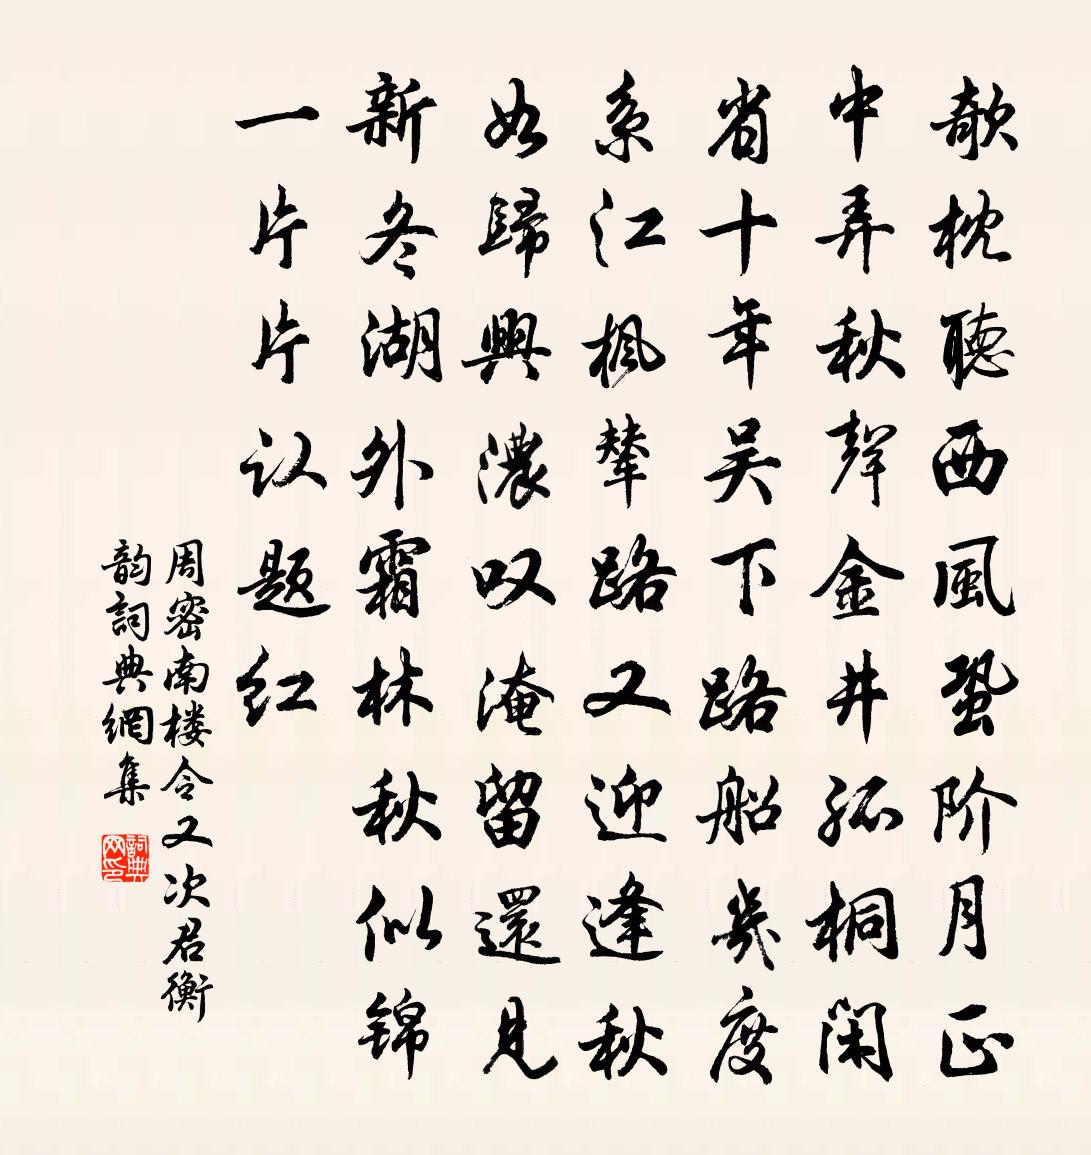 欹枕聽西風蛩阶月正
中弄秋聲金井孤桐闲
省十年吴下路船幾度
系江枫辇路又迎逢秋
如歸興濃叹淹留還見
新冬湖外霜林秋似锦
一片片认题红
周密南楼令又次君衡
韵詞典網集
詞典网印